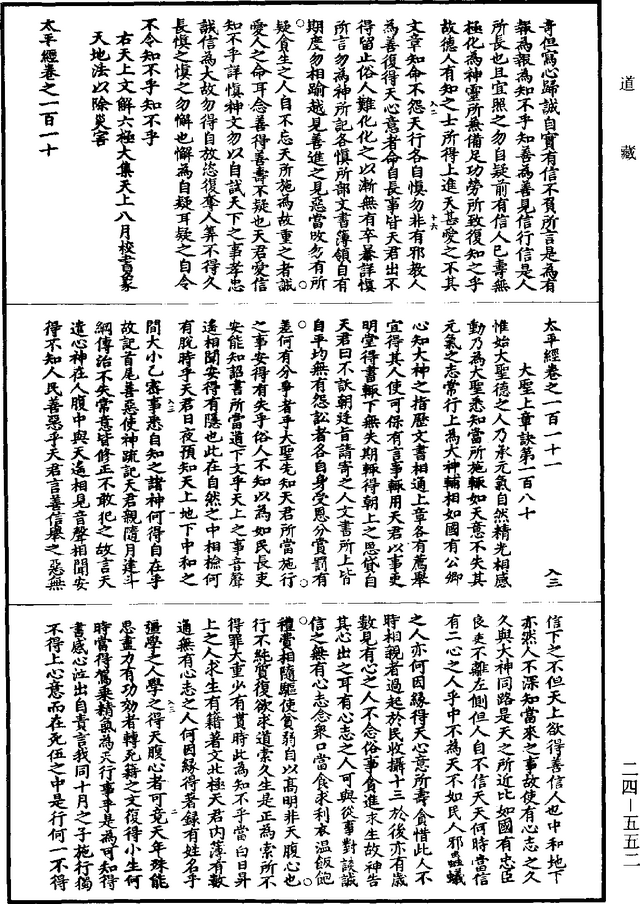 道藏
奇但寫心歸誠自實有信不負所言是為有
報為報為知不乎知善為善見信行信是人
所長也且宜照之勿自疑前有信人已壽無
極化為神靈所無備足功勞所致復知之乎
故德人有知之士所得上進天甚愛之不其
文章知命不怨天行各自慎勿非有邪教人
為善復得天心意者命自長事皆天君出不
得留止俗人難化化之以漸無有卒暴詳慎
所言勿為神所記各慎所部文書簿領自有
期度勿相踰越見善進之見惡當攺勿有所
疑貪生之人自不忘天所施為故重之者誠
愛人之命耳念善得善壽不疑也天君愛信
知不乎詳慎神文勿以自試天下之事孝忠
誠信為大故勿得自放恣復奪人筭不得久
長慎之慎之勿懈也懈為自疑耳疑之自令
不令知不乎知不乎
右天上文解六極大集天上八月校書彖
天地法以除災害
太平經卷之一百一十
太平經卷之一百一十一
入三
大聖上章訣第一百八十
惟始大聖德之人乃承元氣自然精光相感
動乃為大聖悉知當所施輒如天意不失其
元氣之志常行上為大神輔相如國有公卿
心知大神之指歷文書相通上章各有薦舉
宜得其人使可保有言事輒用天君以事更
明堂得書輒下無失期輒得朝上之恩貸自
天君曰不訣朝廷旨請寄之人文書所上皆
自平均無有怨訟者各自身受恩分賞罰有
差何有分爭者乎大聖先知天君所當施行
之事安得有失乎俗人不知以為如民長吏
安能知詔書所當道下文乎天上之事音聲
遙相聞安得有隱也此在自然之中相檢何
有脫時乎天君日夜預知天上地下中和之
間大小乙密事悉自知之諸神何得自在乎
故記首尾善惡使神疏記天君親隨月建斗
綱傳治不失常意皆修正不敢犯之故言天
遣心神在人腹中與天遙相見音聲相聞安
得不知人民善惡乎天君言善信舉之惡無
信下之不但天上欲得善信人也中和地下
亦然人不深知當來之事故使有心志之久
久與大神同路是天之所近比如國有忠臣
良吏不離左側但人自不信天天何時當信
有二心之人乎中不為天不如民人邪蟲蟻
之人亦何因緣得天心意所壽貪惜此人不
時相親者過起於民收攝十三於後亦有歲
數見有心之人不念俗事貪進求生故神告
其心出之耳有心志之人可與從事對談誠
信之無有心志念衆口當食求利衣溫飯飽
禮費相隨驅使貧弱自以高明非天腹心也
行不純質復欲求道索久生是正為索所不
得罪大重少有貰時此為知不乎當白日昇
上之人求生有籍著文北極天君内簿有數
通無有心志之人何因緣得著錄有姓名乎
彊學之人學之得天腹心者可竟天年殊能
思盡力有功効者轉死籍之文復得小生何
時當得駕乘精氣為天行事乎是為可知得
書感心泣出自責言我同十月之子施行獨
不得上心意而在死伍之中是行何一不得
二四—五五二